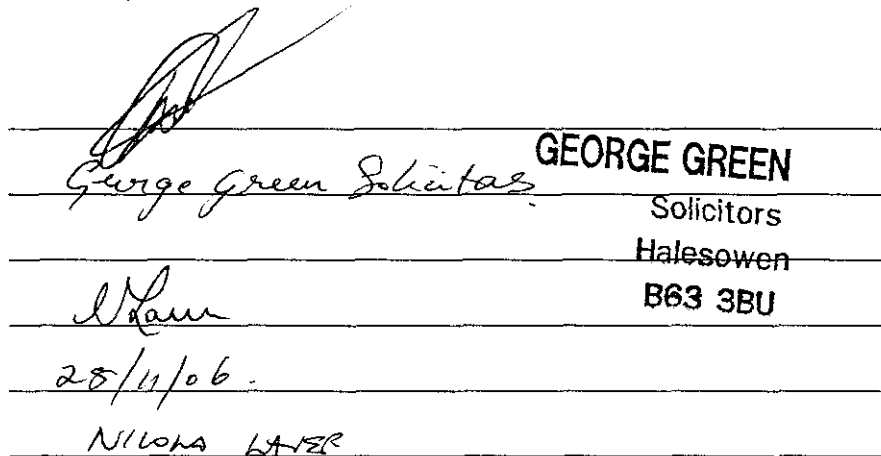 George Green Solicitors.
GEORGE GREEN
Solicitors
Halesowen
B63 3BU
28/11/06.
NICOLA